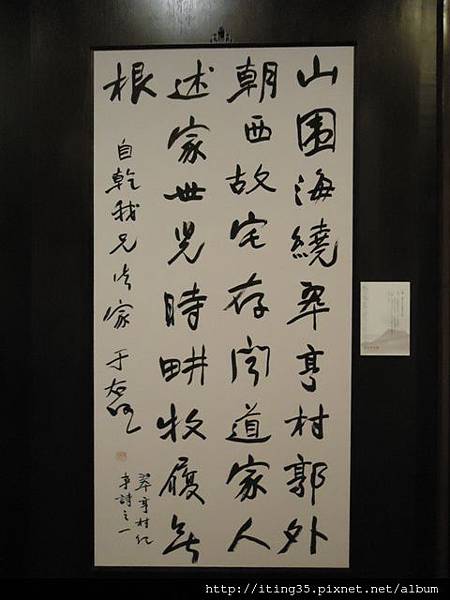 山围海繞翠亨村郭外
朝西故宅存聞道家人
述家世児時畊牧履無
根
自乾我兄法家 于右任
翠亨村紀
事詩之一
http://iting35.pixnet.net/album